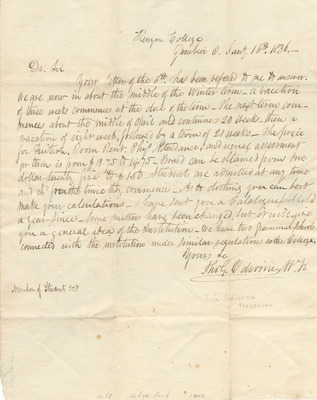 Kenyon College
Gambier O. Jany. 16th 1836.
Dr. Sir
Your letter of the 6th has been refered to me to answer.
We are now in about the middle of the Winter term. A vacation
of three weeks commences at the close of the term. The next term com-
mences about the middle of April and continues 20 weeks. then a
vacation of eight weeks, followed by a term of 21 weeks. The price
for Tuition, Room Rent, Attendance, and usual assessment
pr term is from $
Board can be obtained from One
dollar twenty five to $1.50. Students are admitted at any time
and the time they commence. As to clothing you can best
make your calculations. I have sent you a Catalogue published
a year since. Some matters have been changed, but it will give
you a general idea of the Institution. We have two grammar schools
connected with the institution under similar regulations as the College.
Yours &c
Tho. G. Odiorne
Number of Students
T. G. Odiorne